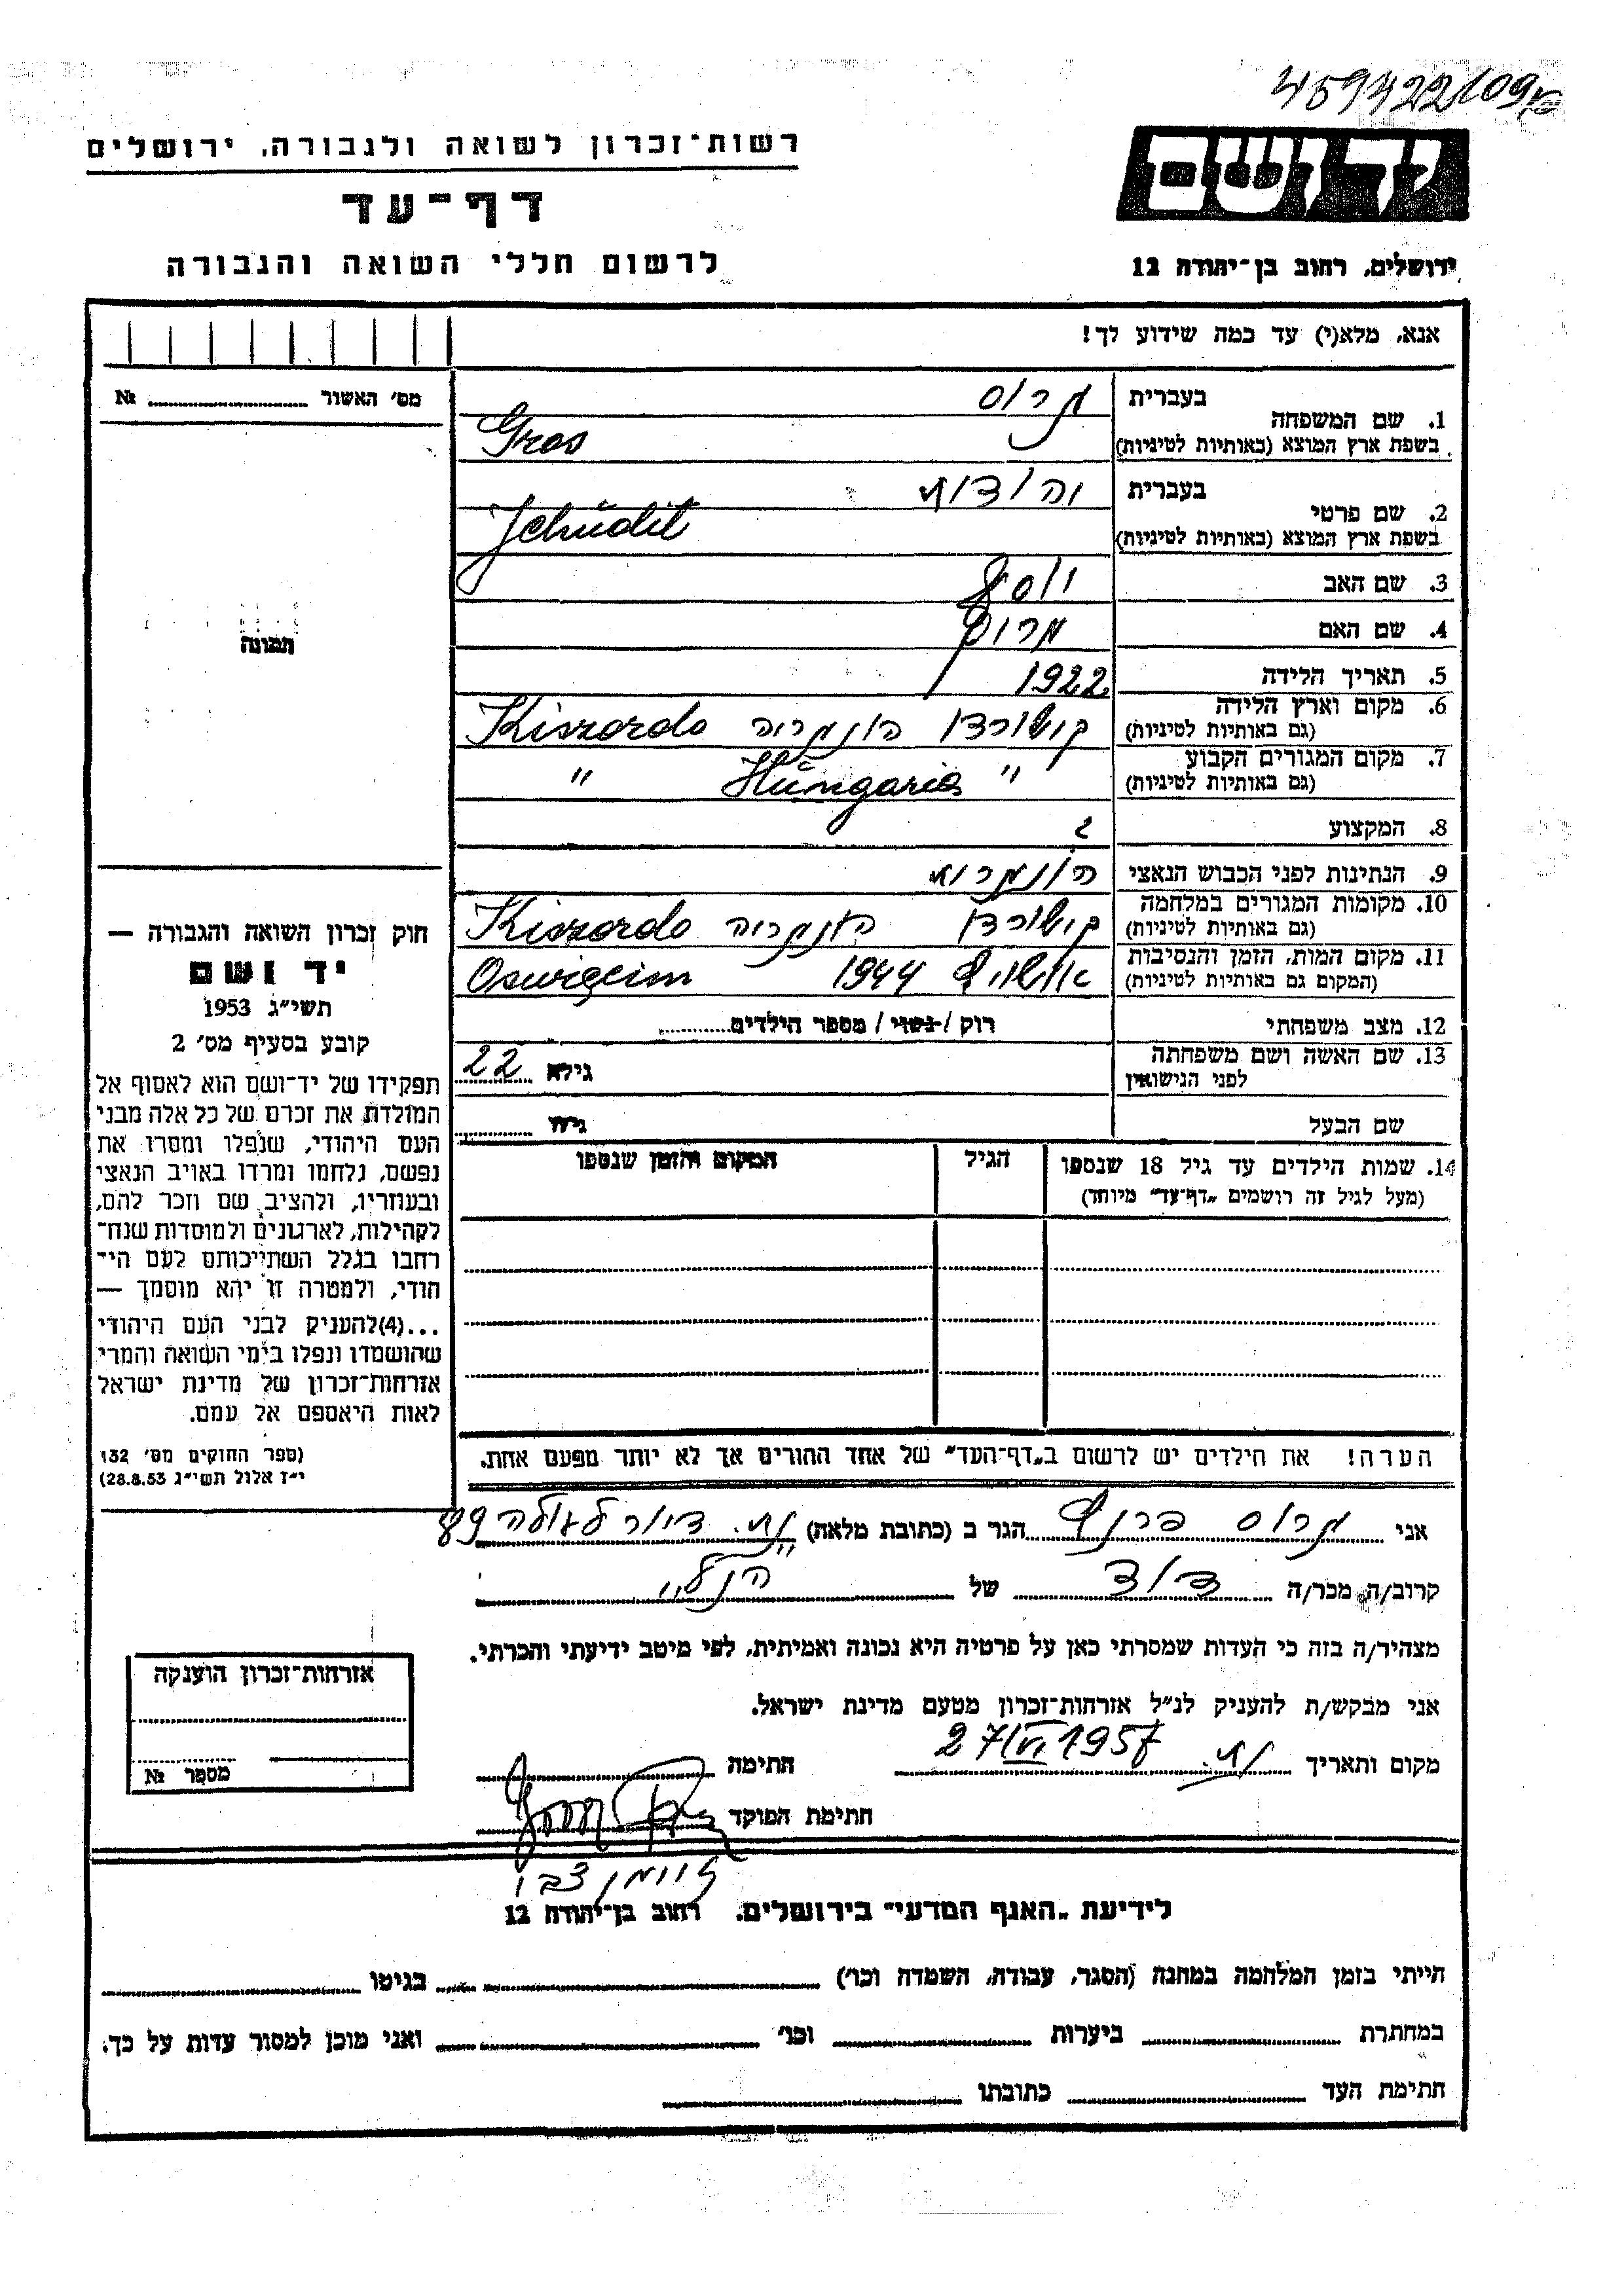 רשות־זכרון לשואה ולגבורה, ירושלים
דף־עד
לרשום חללי השואה והגבורה
יד ושם
ירושלים, רחוב בן־יהודה 12
אנא, מלא(י) עד כמה שידוע לך!
מס׳ האשור № 
בעברית גרוס
1. שם המשפחה
בשפת ארץ המוצא (באותיות לטיניות) Gros
בעברית יהודית
2. שם פרטי
בשפת ארץ המוצא (באותיות לטיניות) Jehüdit
3. שם האב יוסף
4. שם האם
5. תאריך הלידה 1922
6. מקום וארץ הלידה (גם באותיות לטיניות) קישורדו הונגריה Kiszordo
7. מקום המגורים הקבוע (גם באותיות לטיניות) " Hüngaria "
8. המקצוע ?
9. הנתינות לפני הכבוש הנאצי הונגרית
10. מקומות המגורים במלחמה (גם באותיות לטיניות) קישורדו הונגריה Kiszordo
11. מקום המות, הזמן והנסיבות (המקום גם באותיות לטיניות) אושוויץ 1944 Oswięcim
12. מצב משפחתי רוק / נשוי / מספר הילדים
13. שם האשה ושם משפחתה לפני הנישואין גילא 22
שם הבעל גילו
14. שמות הילדים עד גיל 18 שנספו (מעל לגיל זה רושמים „דף־עד״ מיוחד) הגיל המקום והזמן שנספו
הערה! את הילדים יש לרשום ב„דף־העד״ של אחד ההורים אך לא יותר מפעם אחת.
תמונה
חוק זכרון השואה והגבורה —
יד ושם
תשי״ג 1953
קובע בסעיף מס׳ 2
תפקידו של יד־ושם הוא לאסוף אל
המולדת את זכרם של כל אלה מבני
העם היהודי, שנפלו ומסרו את
נפשם, נלחמו ומרדו באויב הנאצי
ובעוזריו, ולהציב שם וזכר להם,
לקהילות, לארגונים ולמוסדות שנח־
רבו בגלל השתייכותם לעם הי־
הודי, ולמטרה זו יהא מוסמך —
...(4)להעניק לבני העם היהודי
שהושמדו ונפלו בימי השואה והמרי
אזרחות־זכרון של מדינת ישראל
לאות היאספם אל עמם.
(ספר החוקים מס׳ 132
י״ז אלול תשי״ג 28.8.53)
אני גרוס פרנץ הגר ב (כתובת מלאה)
קרוב/ה מכר/ה דוד של הנ״ל
מצהיר/ה בזה כי העדות שמסרתי כאן על פרטיה היא נכונה ואמיתית, לפי מיטב ידיעתי והכרתי.
אני מבקש/ת להעניק לנ״ל אזרחות־זכרון מטעם מדינת ישראל.
מקום ותאריך 27/VI.1957 חתימה
חתימת הפוקד
אזרחות־זכרון הוענקה
מספר №
לידיעת „האגף המדעי״ בירושלים, רחוב בן־יהודה 12
הייתי בזמן המלחמה במחנה (הסגר, עבודה, השמדה וכו׳) בגיטו
במחתרת ביערות וכו׳ ואני מוכן למסור עדות על כך.
חתימת העד כתובתו